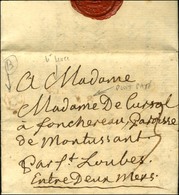 A Madame
Madame De Cursol
à fonchereau, Paroisse
de Montussant
Par St Loubes.
Entre Deux Mers.